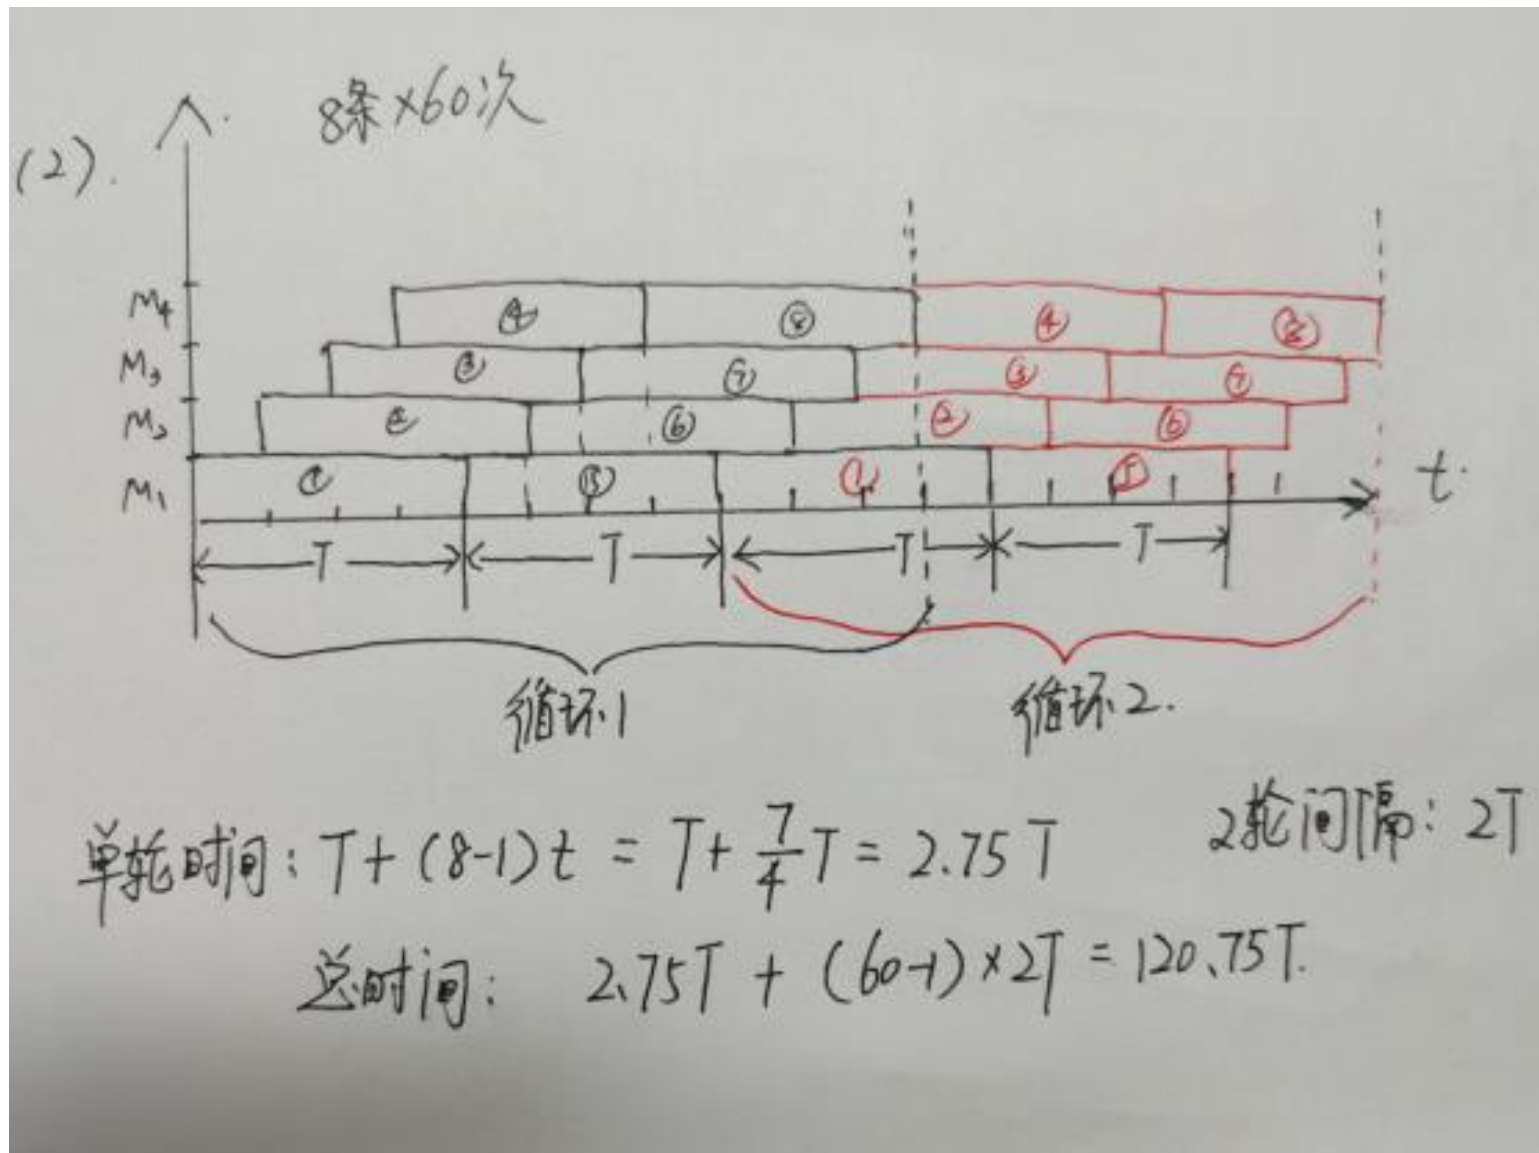 8条×60次
(2).
M4 ④ ⑧ ④ ⑧
M3 ③ ⑦ ③ ⑦
M2 ② ⑥ ② ⑥
M1 ① ⑤ ① ⑤ t.
T T T T
循环1 循环2.
2轮间隔: 2T
单轮时间: T+(8-1)t = T+7/4T = 2.75T
总时间: 2.75T + (60-1)×2T = 120.75T.